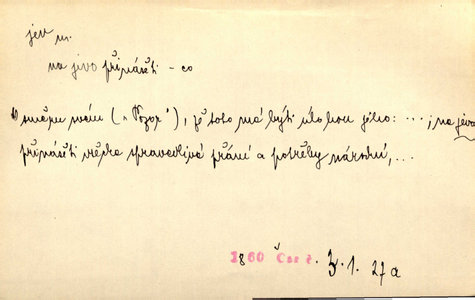 jev m.
na jevo přinášeti – co
směru noviu („Pozor“), jež toto má býti úlohou jeho: ...; na jevo
přinášeti všecka spravedlivá přání a potřeby národní, ...
1860 Čas č. 3. 1. 27a